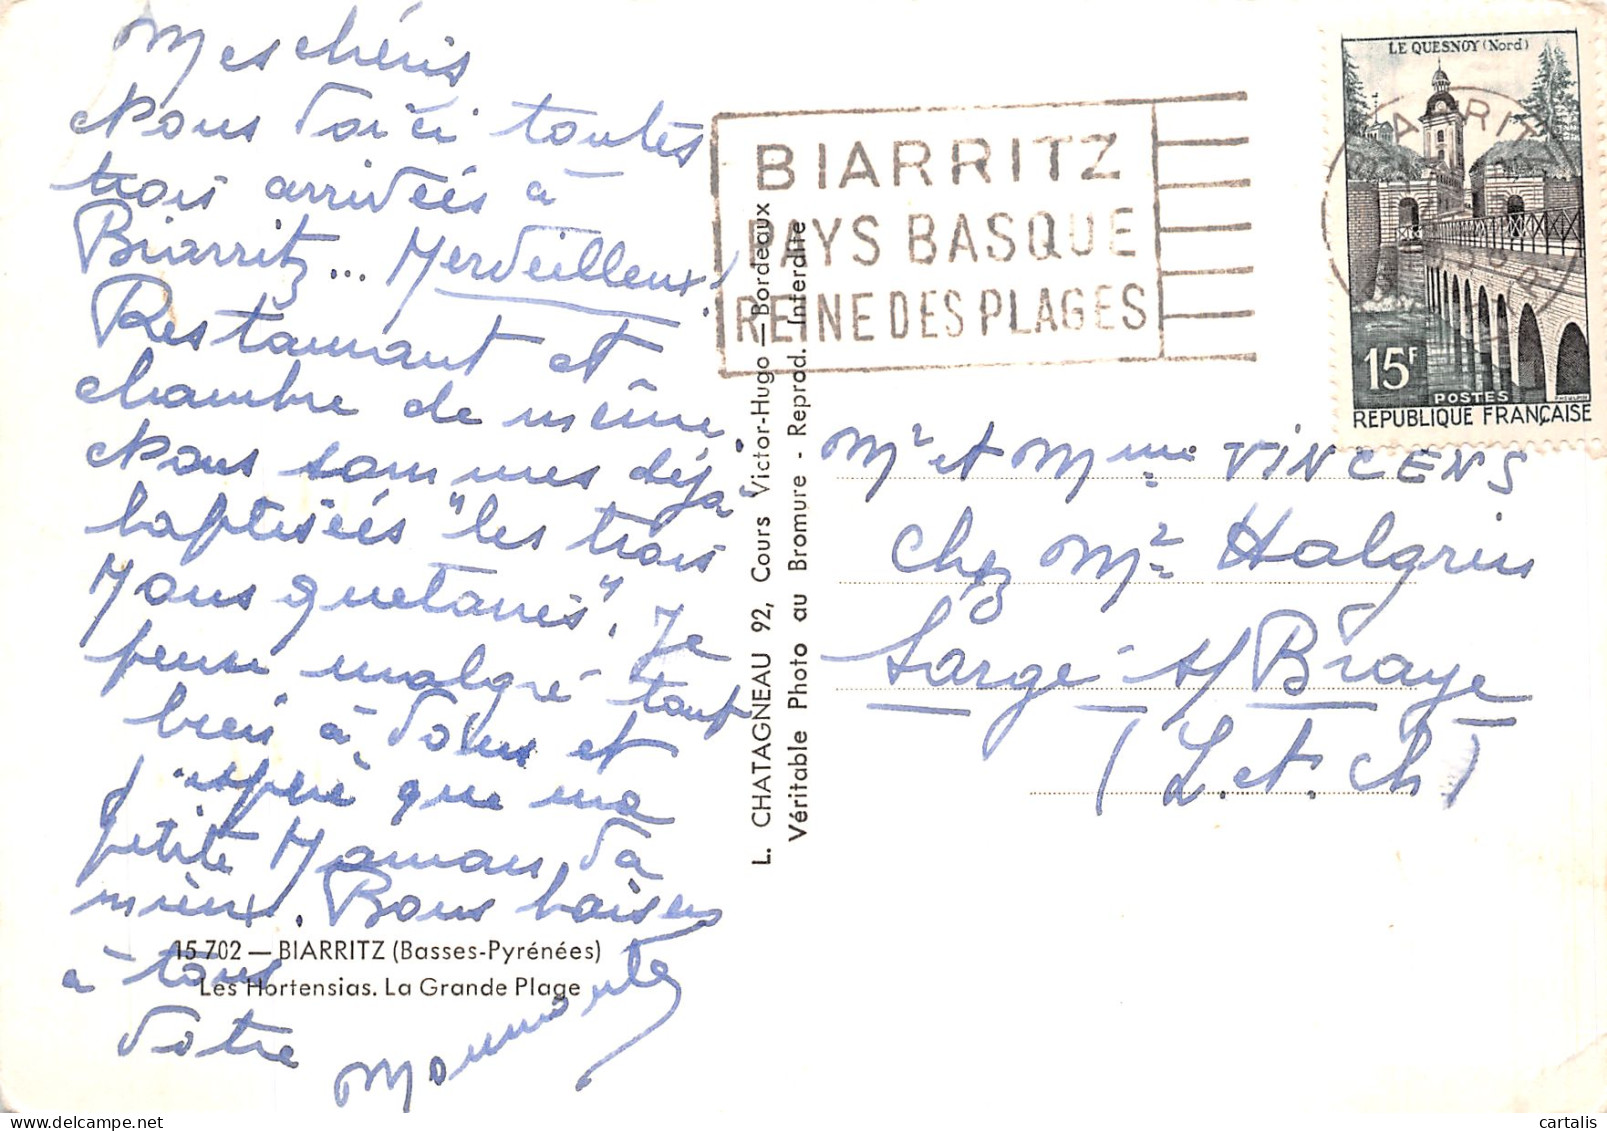 Mes chéris
Nous voici toutes
trois arrivées à
Biarritz... Merveilleux!
Restaurant et
chambre de même.
Nous sommes déjà
baptisées "les trois
Mousquetaires". Je
pense malgré tout
bien à vous et
j'espère que ma
petite Maman va
mieux. Bons baisers
à tous
Votre
15 702 — BIARRITZ (Basses-Pyrénées)
Les Hortensias. La Grande Plage
L. CHATAGNEAU 92, Cours Victor-Hugo — Bordeaux
Véritable Photo au Bromure - Reprod. Interdite
BIARRITZ
PAYS BASQUE
REINE DES PLAGES
LE QUESNOY (Nord)
15F
POSTES
REPUBLIQUE FRANÇAISE
Mr et Mme VINCENS
chez Mr Halgrin
Sargé s/Braye
(L. et. Ch)
cartalis
delcampe.net